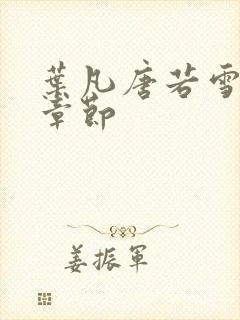 葉凡唐若雪
章節
姜振軍